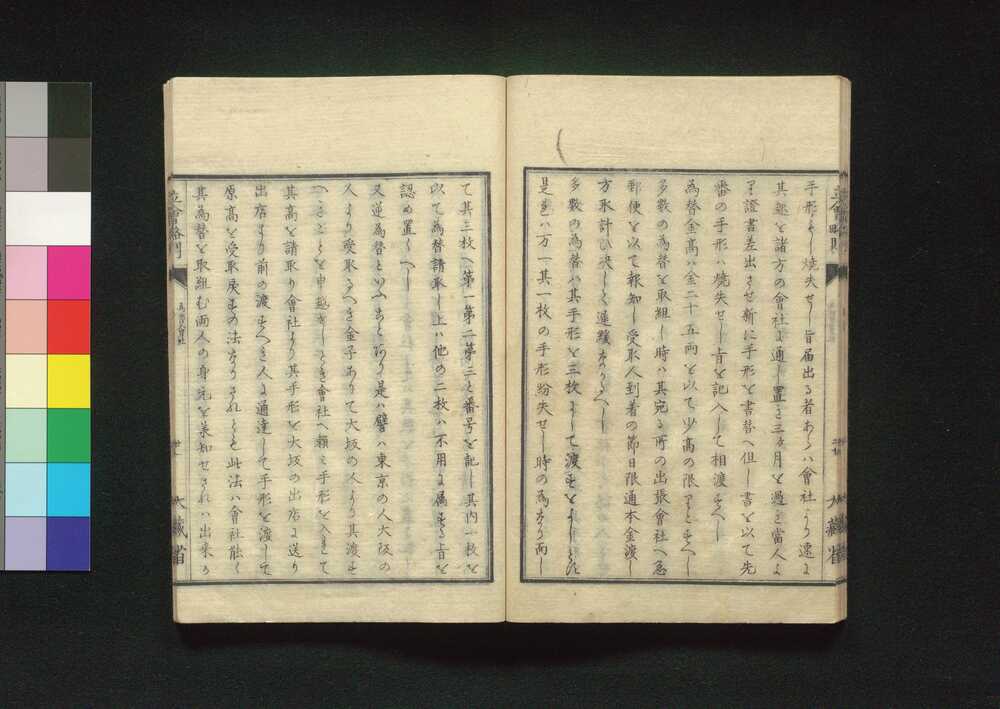 手形もし焼失せし旨届出る者あらハ會社より速に
其趣を諸方の會社に通し置き三ヶ月を過き當人よ
り證書差出させ新に手形を書替へ但し書を以て先
番の手形ハ焼失せし旨を記入して相渡すへし
為替金高ハ金二十五両を以て少高の限りとすへし
多数の為替を取組し時ハ其宛る所の出張會社へ急
郵便を以て報知し受取人到着の節日限通本金渡し
方取計ひ決して遅緩すなかるへし
多数の為替ハ其手形を三枚にして渡すをよしとす
是ハ万一其一枚の手形紛失せし時の為なり而し
て其三枚へ第一第二第三と番号を記し其内一枚を
以て為替請取し上ハ他の二枚ハ不用に属する旨を
認め置くへし
又逆為替といふことあり是ハ譬ハ東京の人大阪の
人より受取るへき金子ありて大坂の人より其渡す
へきことを申越せしとき會社へ頼ミ手形を入れて
其高を請取り會社より其手形を大坂の出店に送り
出店より前の渡すへき人に通達して手形を渡して
原高を受取戻すの法なりされとも此法ハ會社能く
其為替を取組む両人の身元を承知せされハ出来る
立會略則
大藏省